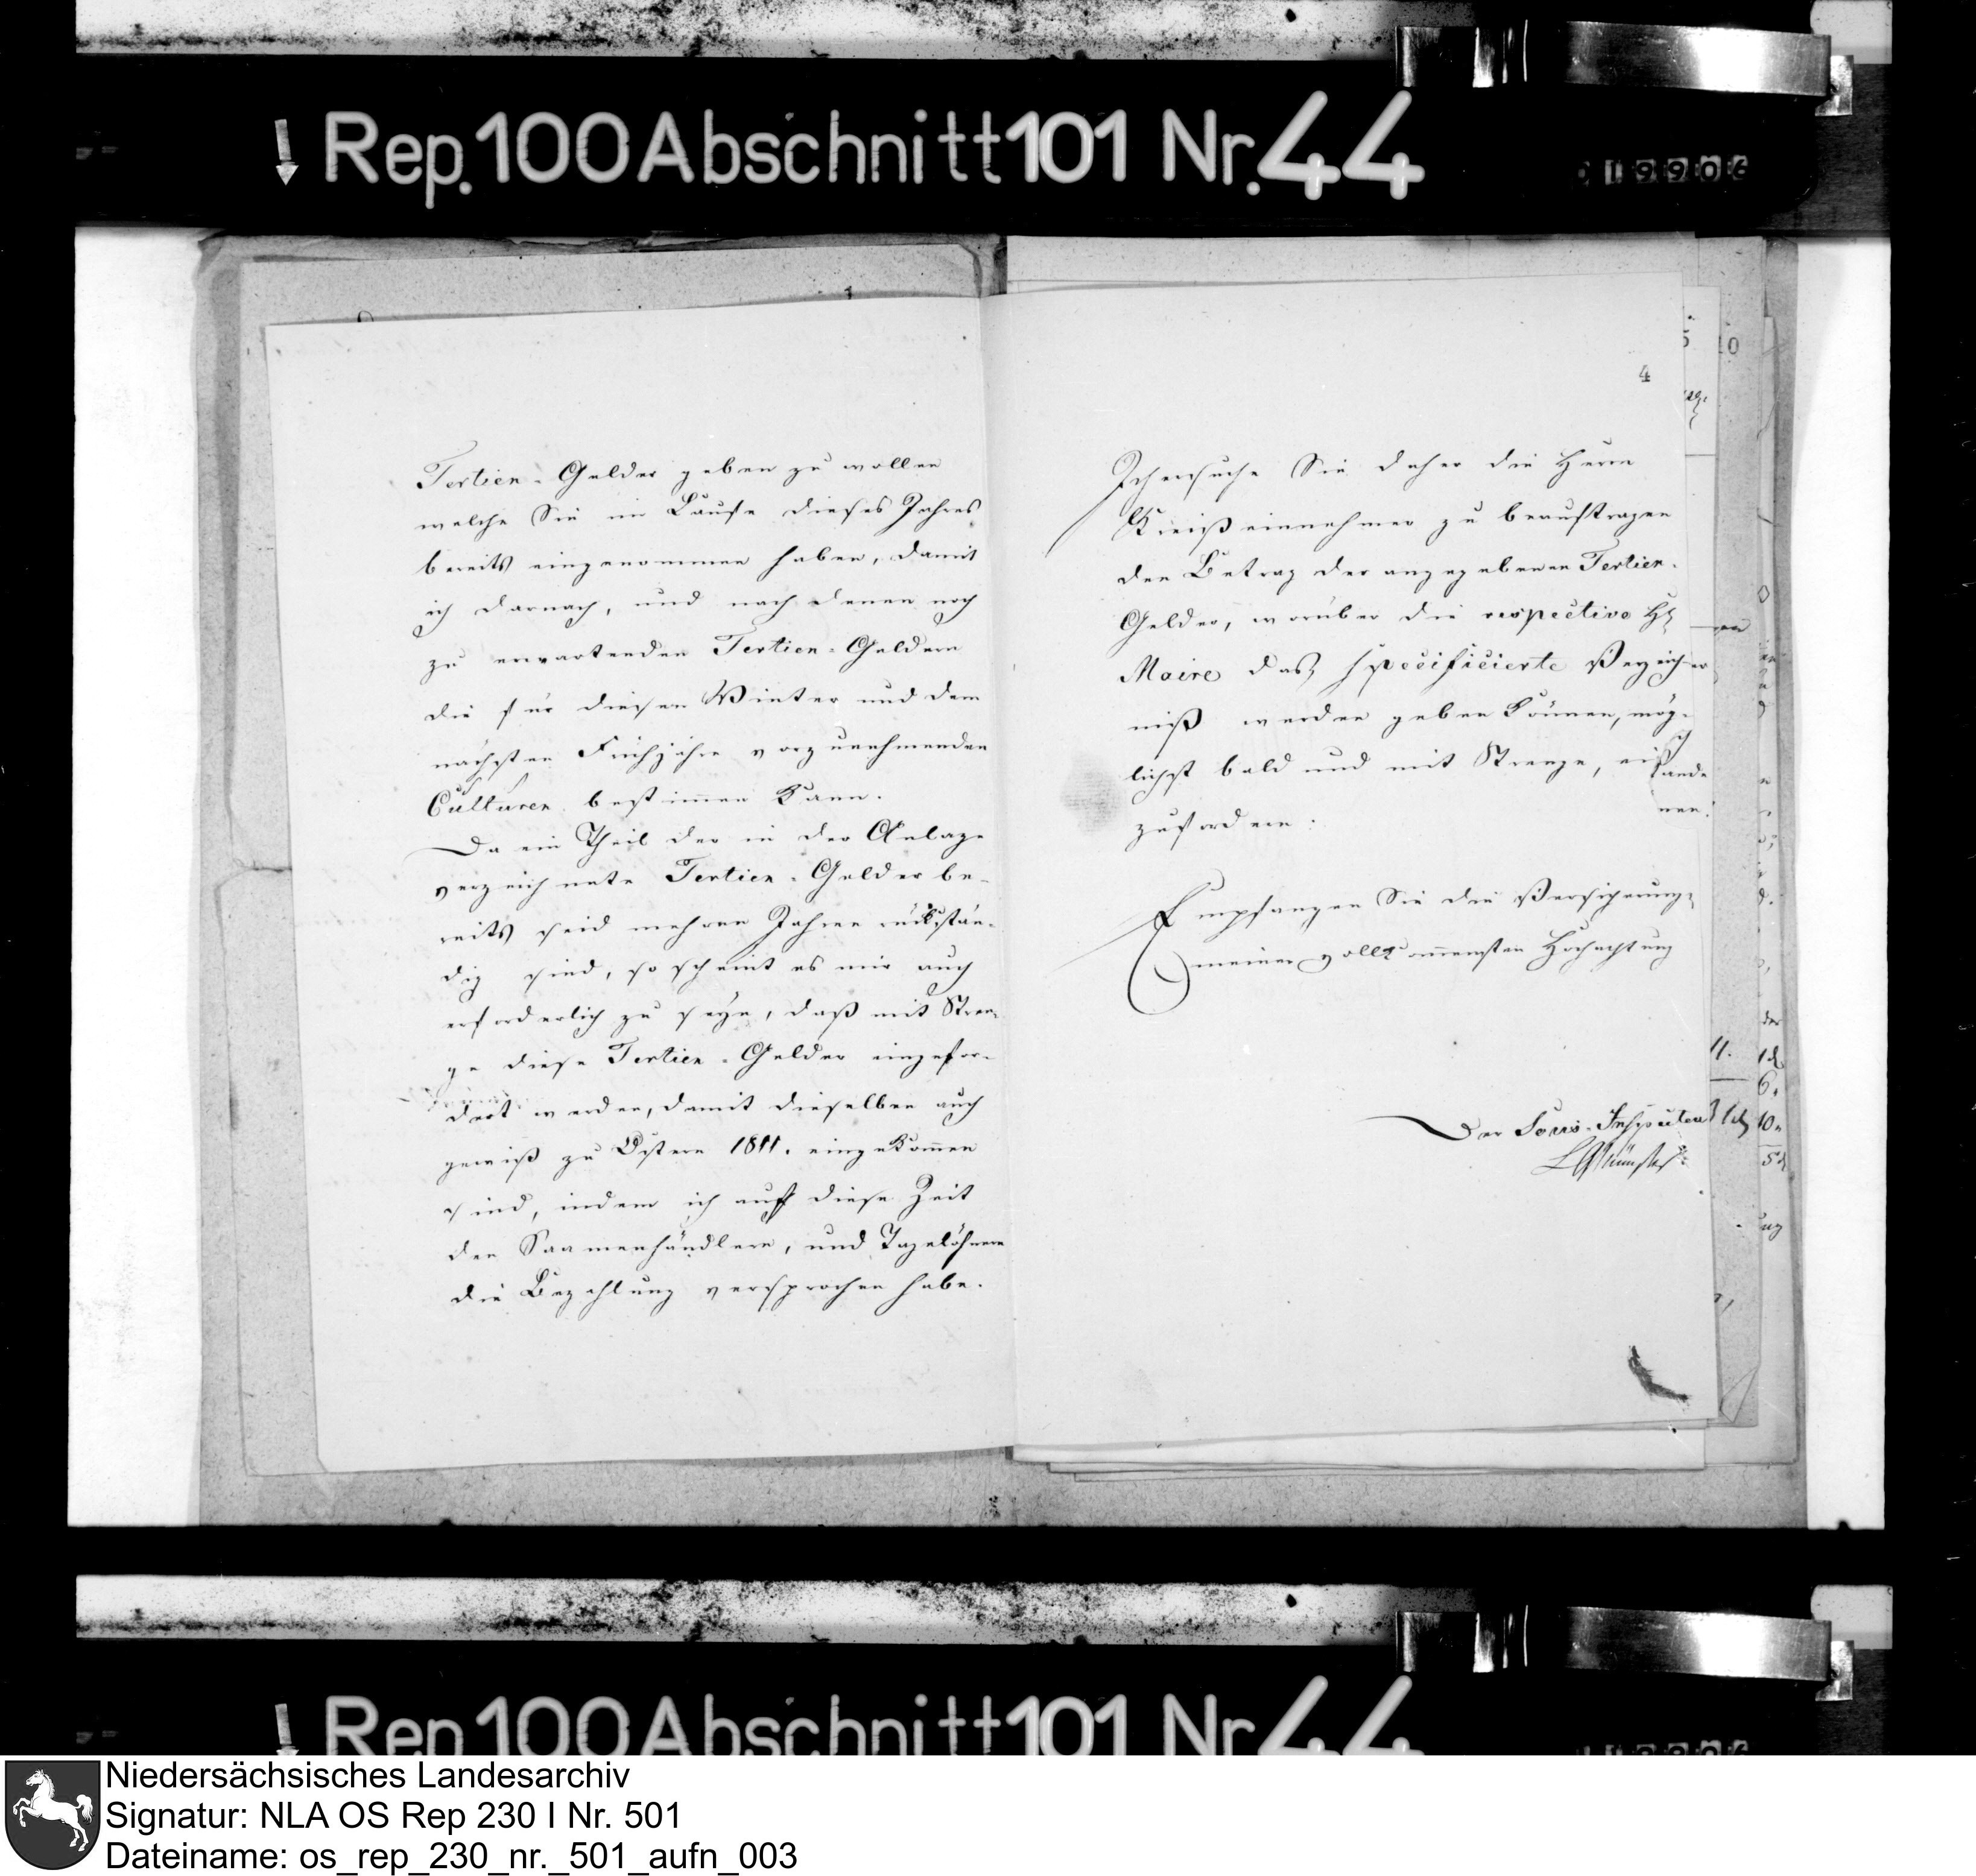 Rep. 100 Abschnitt 101 Nr. 44
019906
1
Tertien-Gelder geben zu wollen
welche Sie im Laufe dieses Jahres
bereits eingenommen haben, damit
ich darnach, und nach denen noch
zu erwartenden Tertien-Geldern
die für diesen Winter und dem
nächsten Frühjahre vorzunehmenden
Culturen bestimmen kann.
Da ein Theil der in der Anlage
verzeichnete Tertien-Gelder be-
reits seid mehren Jahren rückstän-
dig sind, so scheint es mir auch
erforderlich zu seyn, daß mit Stren-
ge diese Tertien-Gelder eingefor-
dert werden, damit dieselben auch
gewiß zu Ostern 1811. eingekom̄en
sind, indem ich auf diese Zeit
den Saamenhändlern, und Tagelöhnern
die Bezahlung versprochen habe.
10
4
Ich ersuche Sie daher die Herrn
Kreiß einnehmer zu beauftragen
den Betrag der angegebenen Tertien-
Gelder, worüber die respective H
Maire das specificierte Verzeich-
niß werden geben können, mög-
lichst bald und mit Strenge,
zufordern.
Empfangen Sie die Versicherung
meiner vollkom̄ensten Hochachtung
Der Sous-Inspecteur
Münster
Rep. 100 Abschnitt 101 Nr. 44
Niedersächsisches Landesarchiv
Signatur: NLA OS Rep 230 I Nr. 501
Dateiname: os_rep_230_nr._501_aufn_003